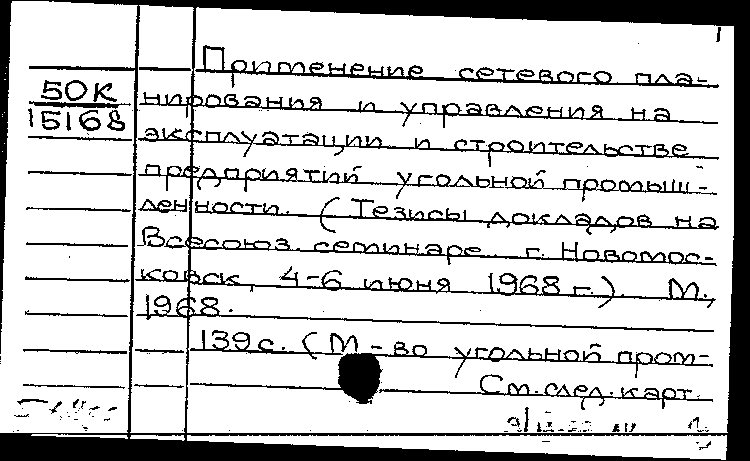 Применение сетевого пла-
50К
15168
нирования и управления на
эксплуатации и строительстве
предприятий угольной промыш-
ленности. (Тезисы докладов на
Всесоюз. семинаре. г. Новомос-
ковск, 4-6 июня 1968 г.). М.,
1968.
139 с. (М-во угольной пром-
См. след. карт.